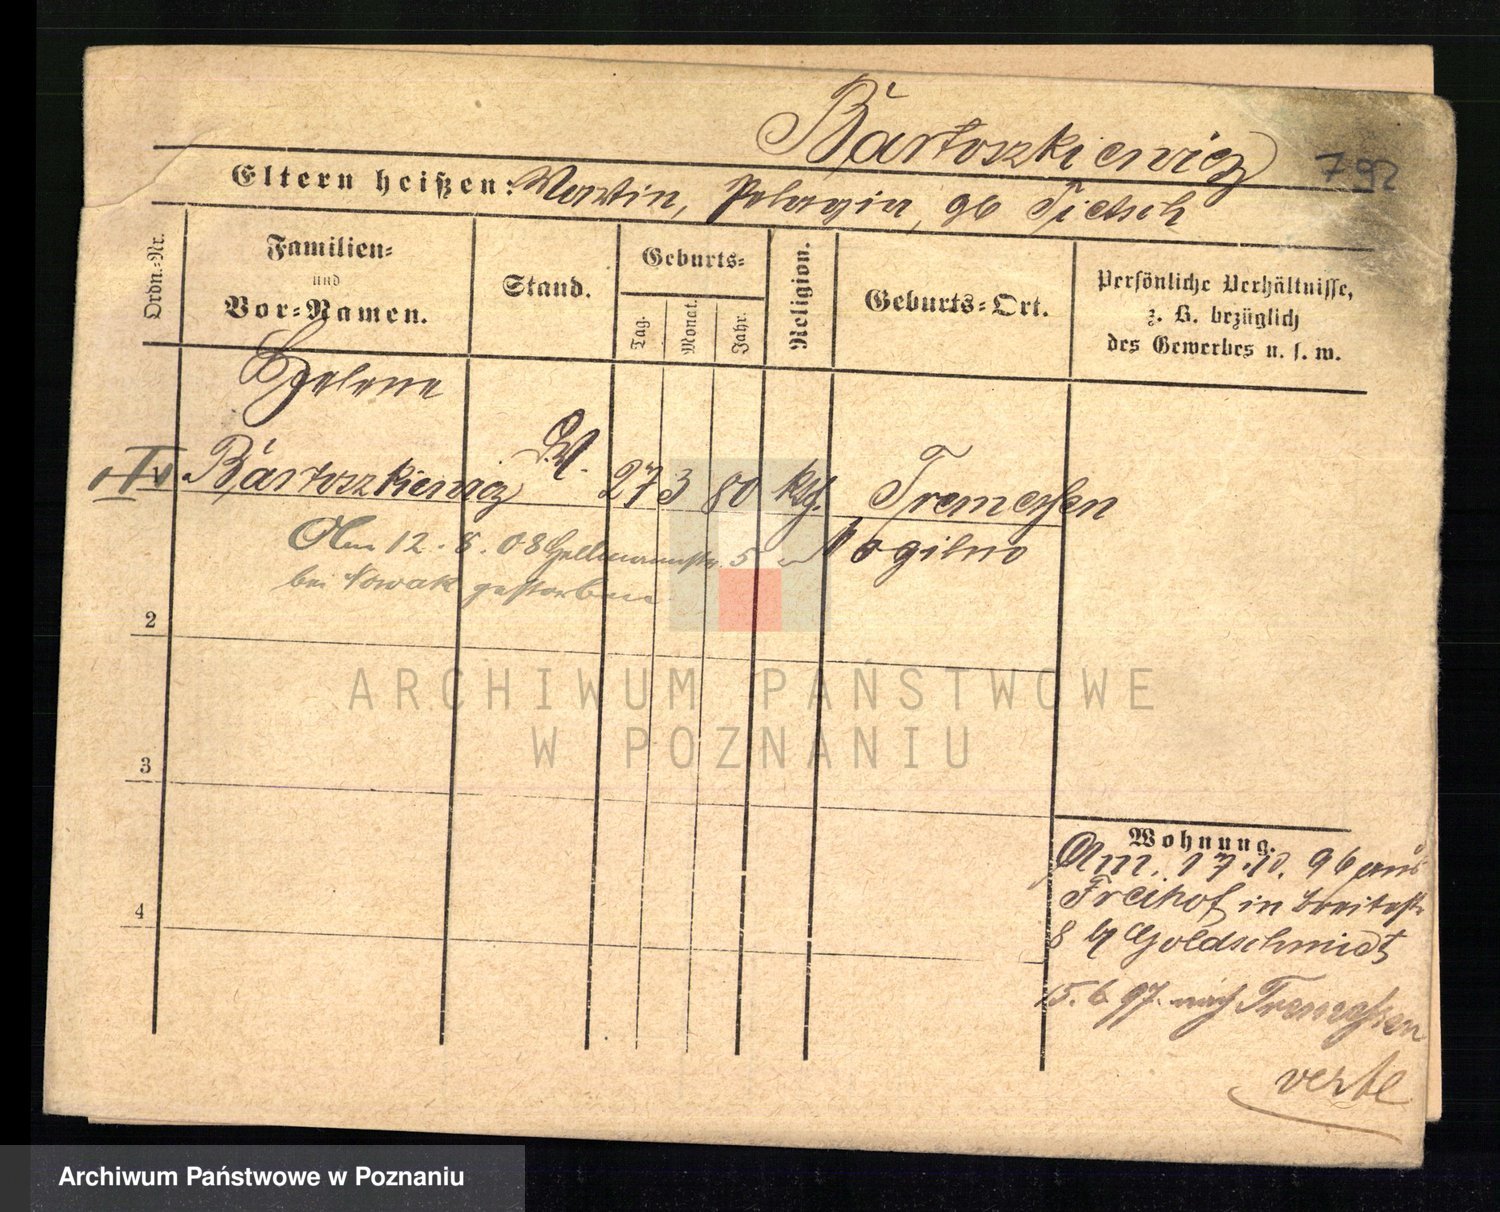 Bartoszkiewicz
792
Eltern heißen: Martin, Pelagia, gb Tietsch
Ordn.=Nr.
Familien=
und
Vor=Namen.
Stand.
Geburts=
Tag.
Monat.
Jahr.
Religion.
Geburts=Ort.
Persönliche Verhältnisse,
z. B. bezüglich
des Gewerbes u. s. w.
Helene
Bartoszkiewicz 27 3 80 kth. Tremessen
Mogilno
Am 12. 8. 08 5
bei Nowak gestorben
2
3
4
Wohnung.
Am. 17.10. 96 aus
Freihof in Breitestr
8 Goldschmidt
15. 6. 97. nach Tremessen
verte
ARCHIWUM PAŃSTWOWE
W POZNANIU
Archiwum Państwowe w Poznaniu